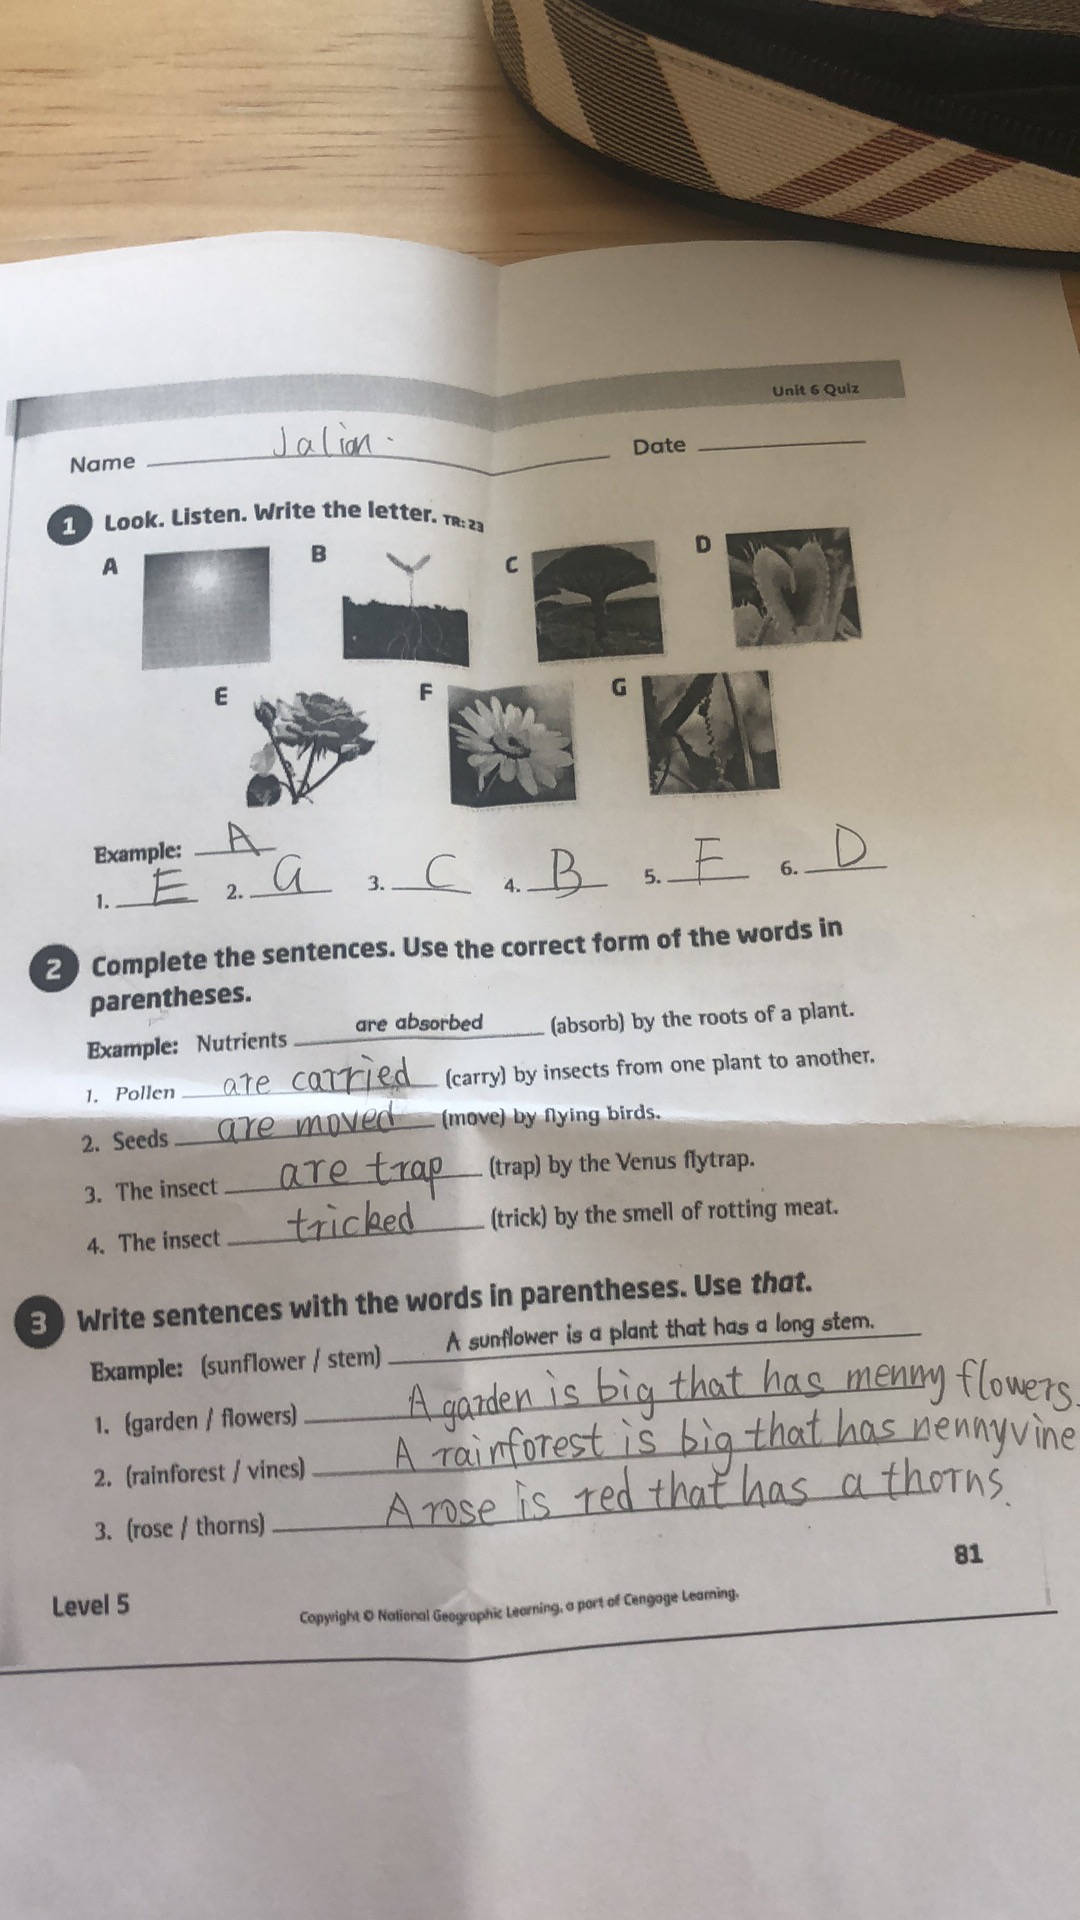 Unit 6 Quiz
Name Jalian. Date
1 Look. Listen. Write the letter. TR: 23
A B C D
E F G
Example: A
1. E 2. G 3. C 4. B 5. F 6. D
2 Complete the sentences. Use the correct form of the words in
parentheses.
Example: Nutrients are absorbed (absorb) by the roots of a plant.
1. Pollen are carried (carry) by insects from one plant to another.
2. Seeds are moved (move) by flying birds.
3. The insect are trap (trap) by the Venus flytrap.
4. The insect tricked (trick) by the smell of rotting meat.
3 Write sentences with the words in parentheses. Use that.
Example: (sunflower / stem) A sunflower is a plant that has a long stem.
1. (garden / flowers) A garden is big that has menny flowers.
2. (rainforest / vines) A rainforest is big that has nenny vine
3. (rose / thorns) A rose is red that has a thorns.
81
Level 5
Copyright © National Geographic Learning, a part of Cengage Learning.